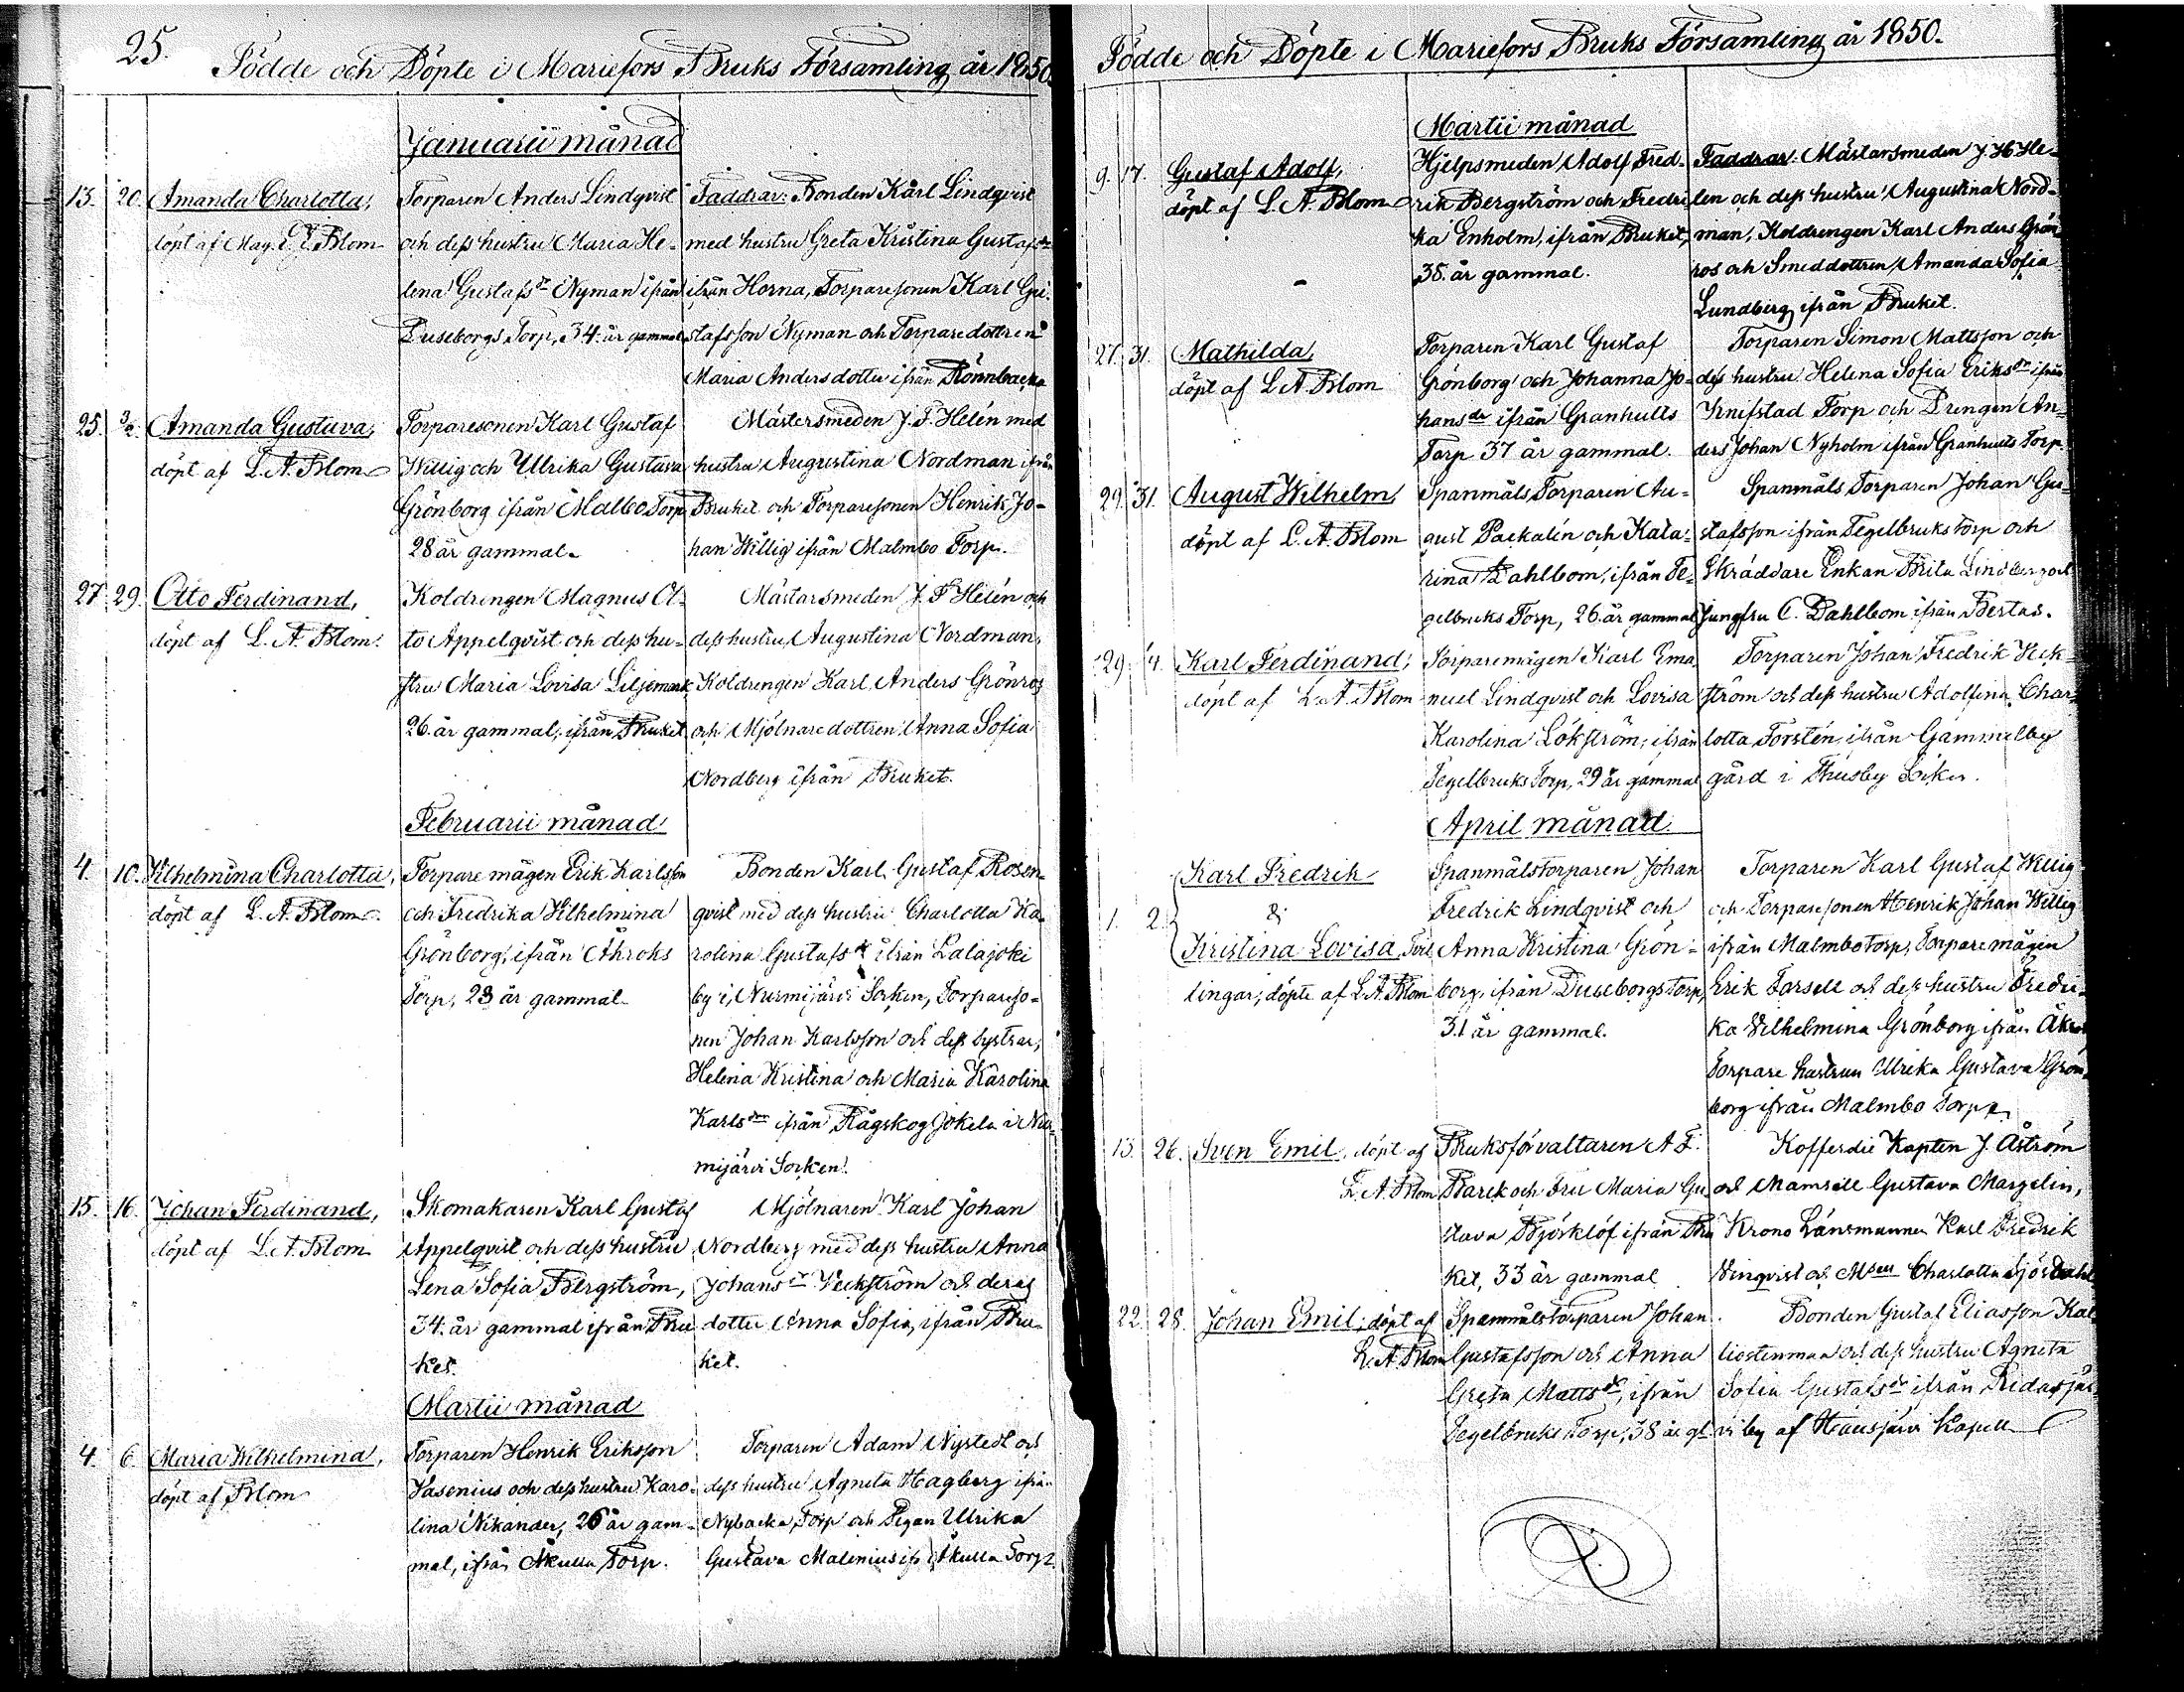 25.
Födde och Döpte i Mariefors Bruks Församling år 1850.
Januarii månad
13. 20. Amanda Charlotta, Torparen Anders Lindqvist Faddrar: Bonden Karl Lindqvist
döpt af Mag. Blom och dess hustru Maria He- med hustru Greta Kristina Gustafsdr
lena Gustafsdr Nyman ifrån ifrån Horna, Torparesonen Karl Gu-
Duseborgs Torp, 34. år gammal stafsson Nyman och Torparedottren
Maria Andersdotter ifrån Rönnbacka
25. 3/2. Amanda Gustava, Torparesonen Karl Gustaf Mästersmeden J. F. Helén med
döpt af L. A. Blom Willig och Ulrika Gustava hustru Augustina Nordman ifrån
Grönborg ifrån Malbo Torp Bruket och Torparesonen Henrik Jo-
28 år gammal. han Willig ifrån Malmbo Torp.
27 29. Otto Ferdinand, Koldrengen Magnus Ot- Mästarsmeden J. F Helén och
döpt af L. A. Blom. to Appelqvist och dess hu- dess hustru Augustina Nordman,
stru Maria Lovisa Liljemark Koldrengen Karl Anders Grönros
26. år gammal, ifrån Bruket och Mjölnaredottren Anna Sofia
Nordberg ifrån Bruket.
Februarii månad
4. 10. Vilhelmina Charlotta, Torpare mågen Erik Karlsson Bonden Karl Gustaf Rosen-
döpt af L. A. Blom. och Fredrika Vilhelmina qvist med dess hustru Charlotta Ka-
Grönborg, ifrån Åkroks rolina Gustafsdr ifrån Lalajoki
Torp, 28 år gammal. by i Nurmijärvi Socken, Torpareso-
nen Johan Karlsson och dess systrar,
Helena Kristina och Maria Karolina
Karlsdr ifrån Rågskog Jokela i Nur-
mijärvi Socken.
15. 16. Johan Ferdinand, Skomakaren Karl Gustaf Mjölnaren Karl Johan
döpt af L. A. Blom Appelqvist och dess hustru Nordberg med dess hustru Anna
Lena Sofia Bergström, Johansdr Veckström och deras
34. år gammal ifrån Bru dotter Anna Sofia, ifrån Bru-
ket. ket.
Martii månad
4. 6. Maria Wilhelmina, Torparen Henrik Eriksson Torparen Adam Nystedt och
döpt af Blom Vasenius och dess hustru Karo- dess hustru Agneta Hagberg ifrån
lina Nikander, 26 år gam- Nybacka Torp och Pigan Ulrika
mal, ifrån Åkulla Torp. Gustava Malenius ifr Åkulla Torp.
Födde och Döpte i Mariefors Bruks Församling år 1850.
Martii månad
9. 17. Gustaf Adolf, Hjelpsmeden Adolf Fred- Faddrar. Mästarsmeden J. H He-
döpt af L. A. Blom rik Bergström och Fredri len och dess hustru Augustina Nord-
ka Enholm, ifrån Bruket, man, Koldrengen Karl Anders Grön
38. år gammal. ros och Smeddottren Amanda Sofia
Lundberg ifrån Bruket.
27. 31. Mathilda, Torparen Karl Gustaf Torparen Simon Mattsson och
döpt af L A. Blom Grönborg och Johanna Jo- dess hustru Helena Sofia Eriksdr ifrån
hansdr ifrån Granhults Knifstad Torp och Drengen An-
Torp 37 år gammal. ders Johan Nyholm ifrån Granhults Torp.
29. 31. August Wilhelm Spanmåls Torparen Au- Spanmåls Torparen Johan Gu-
döpt af L. A. Blom gust Packalén och Kata- stafsson ifrån Tegelbruks Torp och
rina Dahlbom, ifrån Te- Skräddare Enkan Brita Lindberg och
gelbruks Torp, 26. år gammal Jungfru C. Dahlbom ifrån Bertas.
29. 4. Karl Ferdinand, Torparemågen Karl Ema Torparen Johan Fredrik Vek-
döpt af L. A. Blom nuel Lindqvist och Lovisa ström och dess hustru Adolfina Char-
Karolina Lökström, ifrån lotta Forstén, ifrån Gammelby
Tegelbruks Torp, 29 år gammal gård i Thusby Socken.
April månad.
Karl Fredrik Spanmålstorparen Johan Torparen Karl Gustaf Willig
1. 2. & Fredrik Lindqvist och och Torparesonen Henrik Johan Willig
Kristina Lovisa, Tvil Anna Kristina Grön- ifrån Malmbo torp, Torpare mågen
lingar, döpte af L. A. Blom borg, ifrån Duseborgs Torp, Erik Forsell och dess hustru Fredri-
31 år gammal. ka Vilhelmina Grönborg ifrån Åkrok,
Torpare hustrun Ulrika Gustava Grön-
borg ifrån Malmbo Torp.
13. 26. Sven Emil, döpt af Bruksförvaltaren A F. Kofferdie Kapten J. Åström
L. A. Blom Barck och Fru Maria Gu och Mamsell Gustava Margelin,
stava Björklöf ifrån Bru Krono Länsmannen Karl Fredrik
ket, 33 år gammal och Msell Charlotta Sjödahl
22. 28. Johan Emil, döpt af Spanmålstorparen Johan Bonden Gustaf Eliasson Kal
L. A. Blom Gustafsson och Anna liostenmaa och dess hustru Agneta
Greta Mattsdr, ifrån Sofia Gustafsdr ifrån Ridasjär
Tegelbruks Torp, 38 år gl vi by af Hausjärvi Kapell